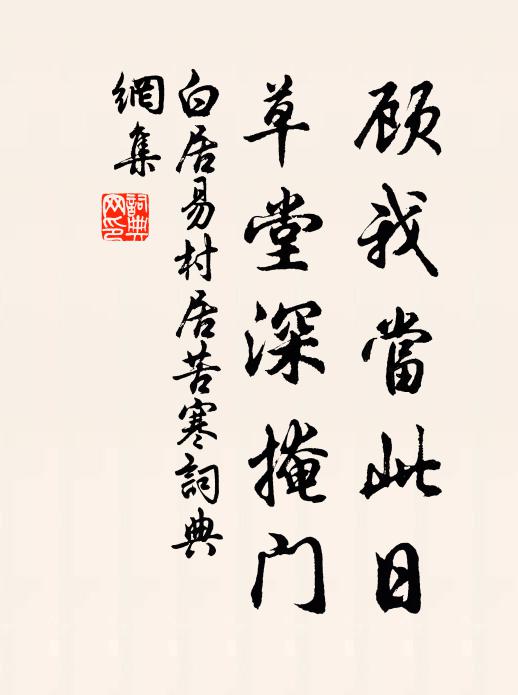 顾我當此日
草堂深掩门
白居易村居苦寒詞典
網集
詞典网印